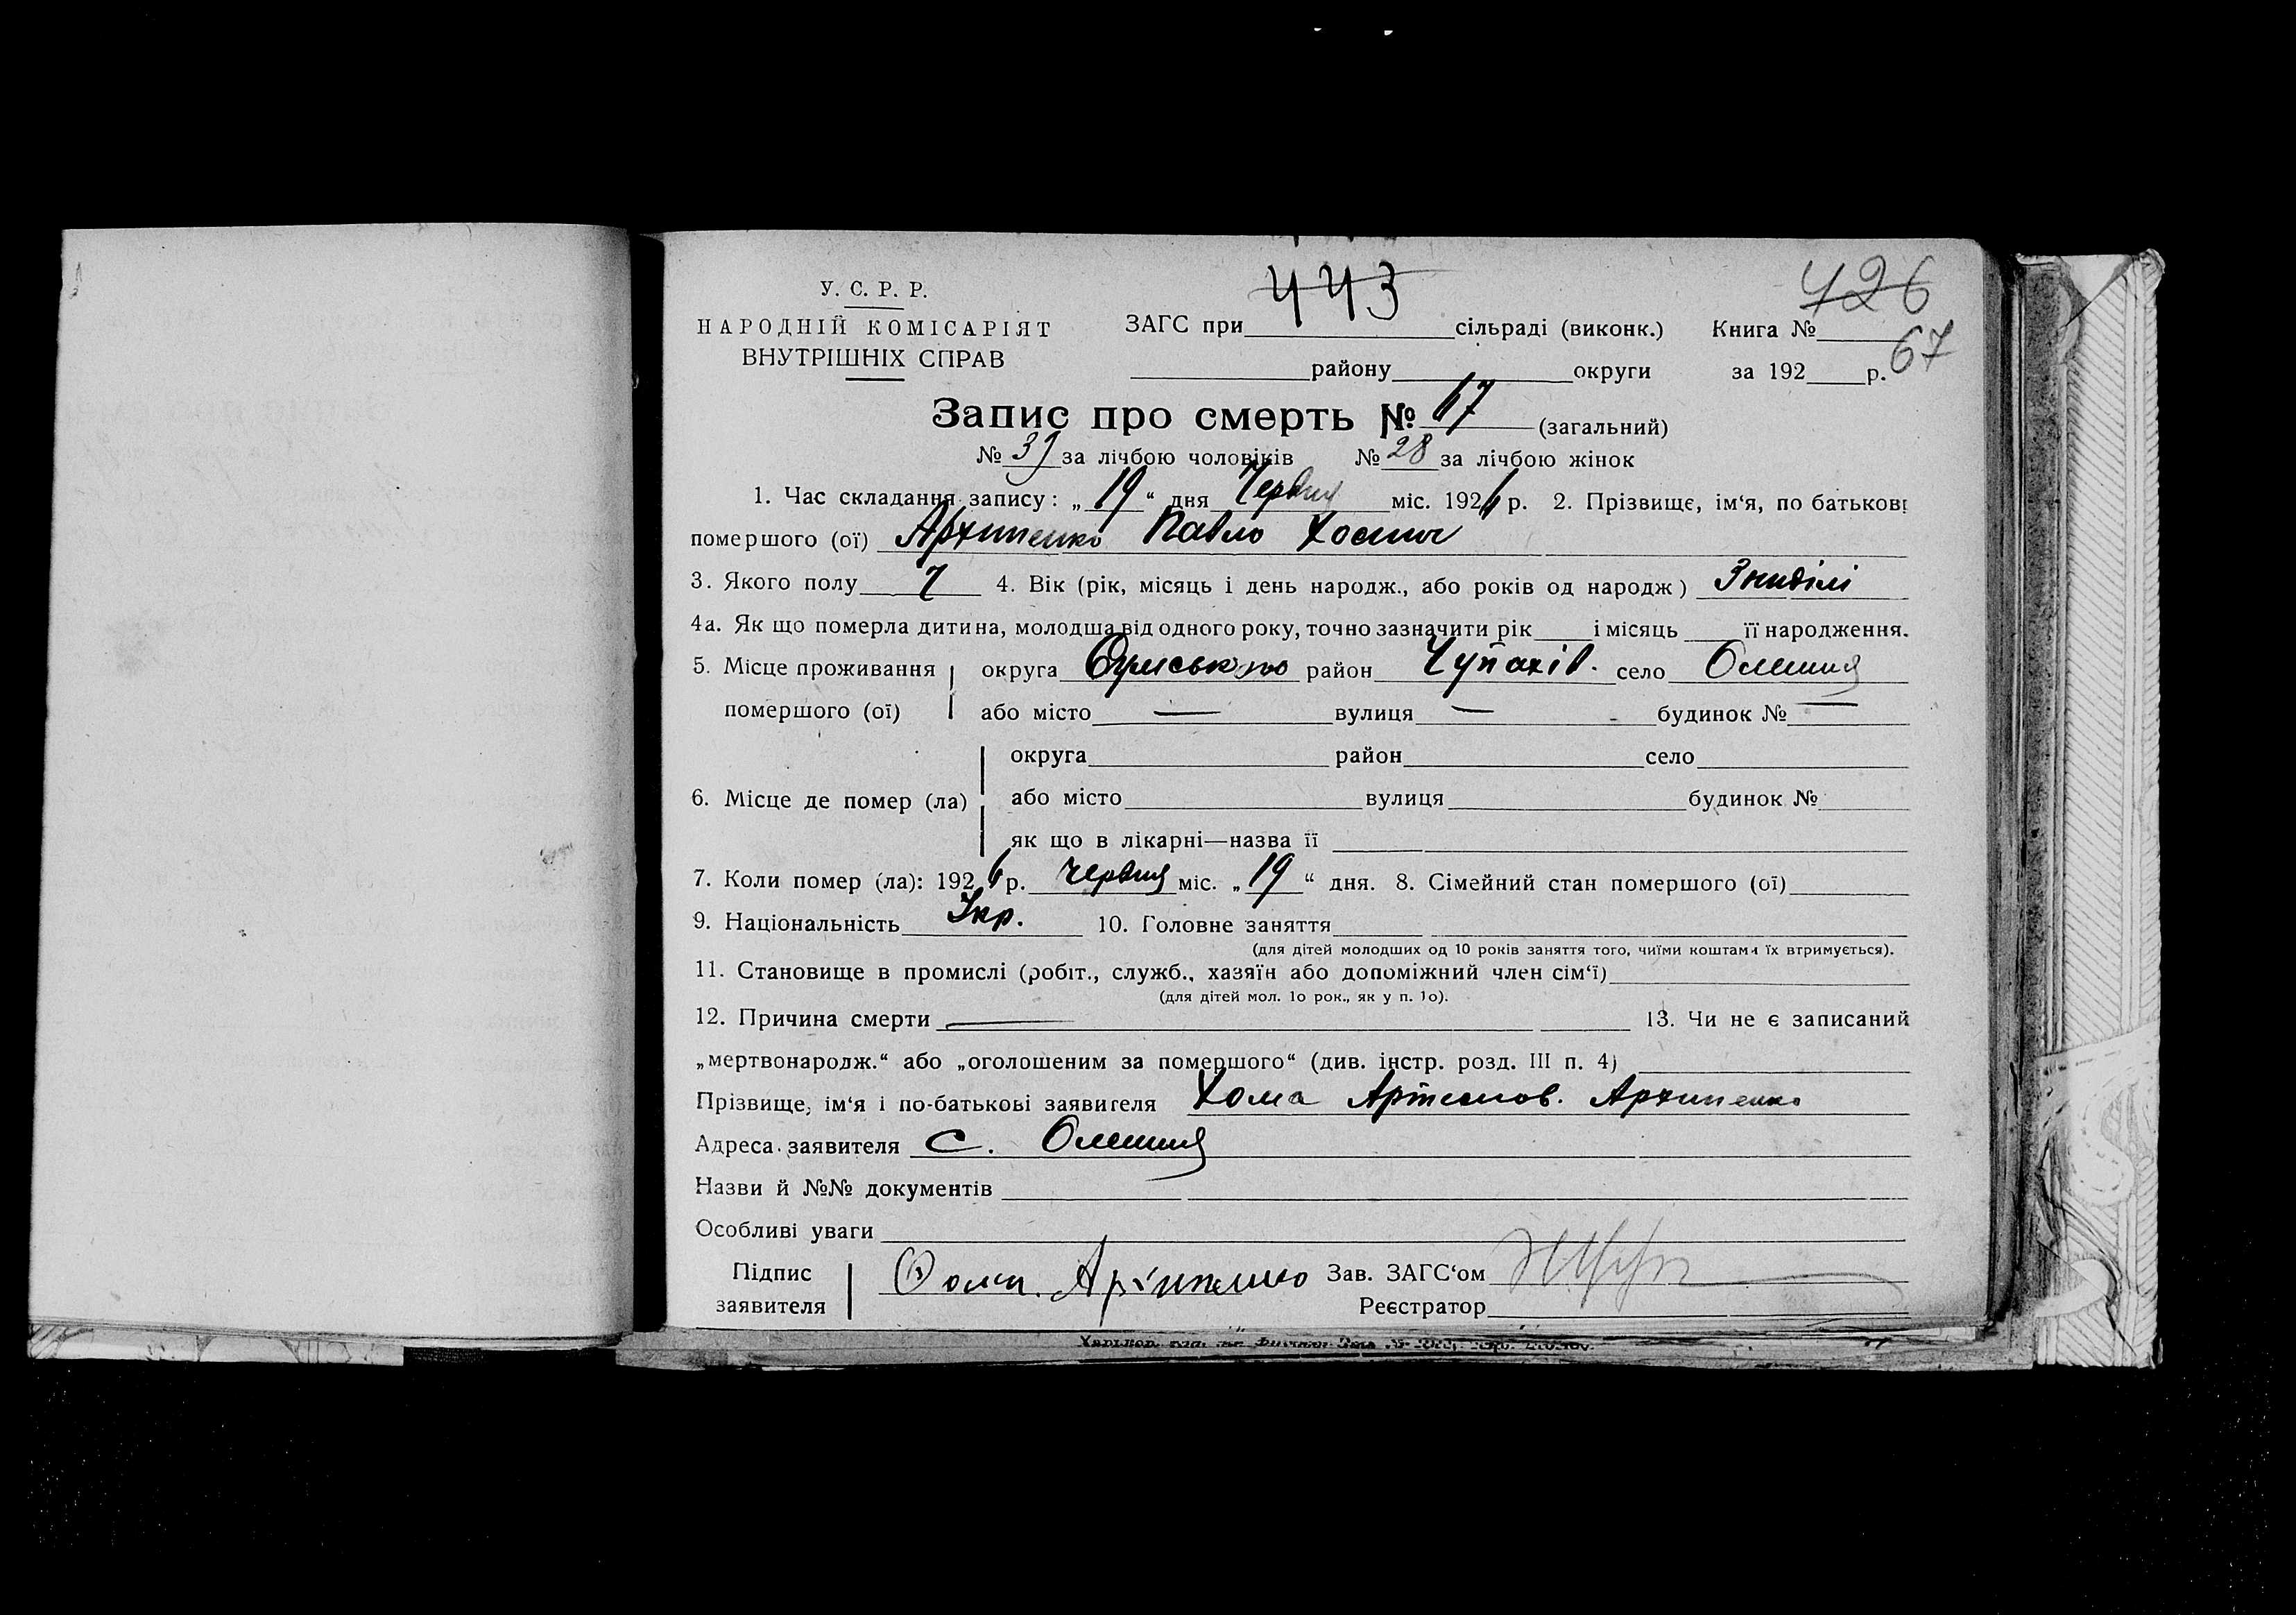 443
426
У. С. Р. Р.
НАРОДНІЙ КОМІСАРІЯТ
ВНУТРІШНІХ СПРАВ
ЗАГС при сільраді (виконк.) Книга №
67
району округи за 192 р.
Запис про смерть № 67 (загальний)
№ 39 за лічбою чоловіків № 28 за лічбою жінок
1. Час складання запису: „ 19 “ дня Червня міс. 1926 р. 2. Прізвище, ім‘я, по батькові
помершого (ої) Архипенко Павло Хомич
3. Якого полу Ч 4. Вік (рік, місяць і день народж., або років од народж) 3 неділі
4а. Як що померла дитина, молодша від одного року, точно зазначити рік і місяць її народження.
5. Місце проживання округа Сумською район Чупахів. село Олешня
помершого (ої) або місто — вулиця — будинок № —
округа район село
6. Місце де помер (ла) або місто вулиця будинок №
як що в лікарні—назва її
7. Коли помер (ла): 1926 р. червня міс. „ 19 “ дня. 8. Сімейний стан помершого (ої)
9. Національність Укр. 10. Головне заняття
(для дітей молодших од 10 років заняття того, чиїми коштами їх втримується).
11. Становище в промислі (робіт., служб., хазяїн або допоміжний член сім‘ї)
(для дітей мол. 1о рок., як у п. 1о).
12. Причина смерти — 13. Чи не є записаний
„мертвонародж.“ або „оголошеним за помершого“ (див. інстр. розд. III п. 4)
Прізвище, ім‘я і по-батькові заявителя Хома Артемов. Архипенко
Адреса заявителя с. Олешня
Назви й №№ документів
Особливі уваги
Підпис Фома. Архипенко Зав. ЗАГС‘ом
заявителя Реєстратор